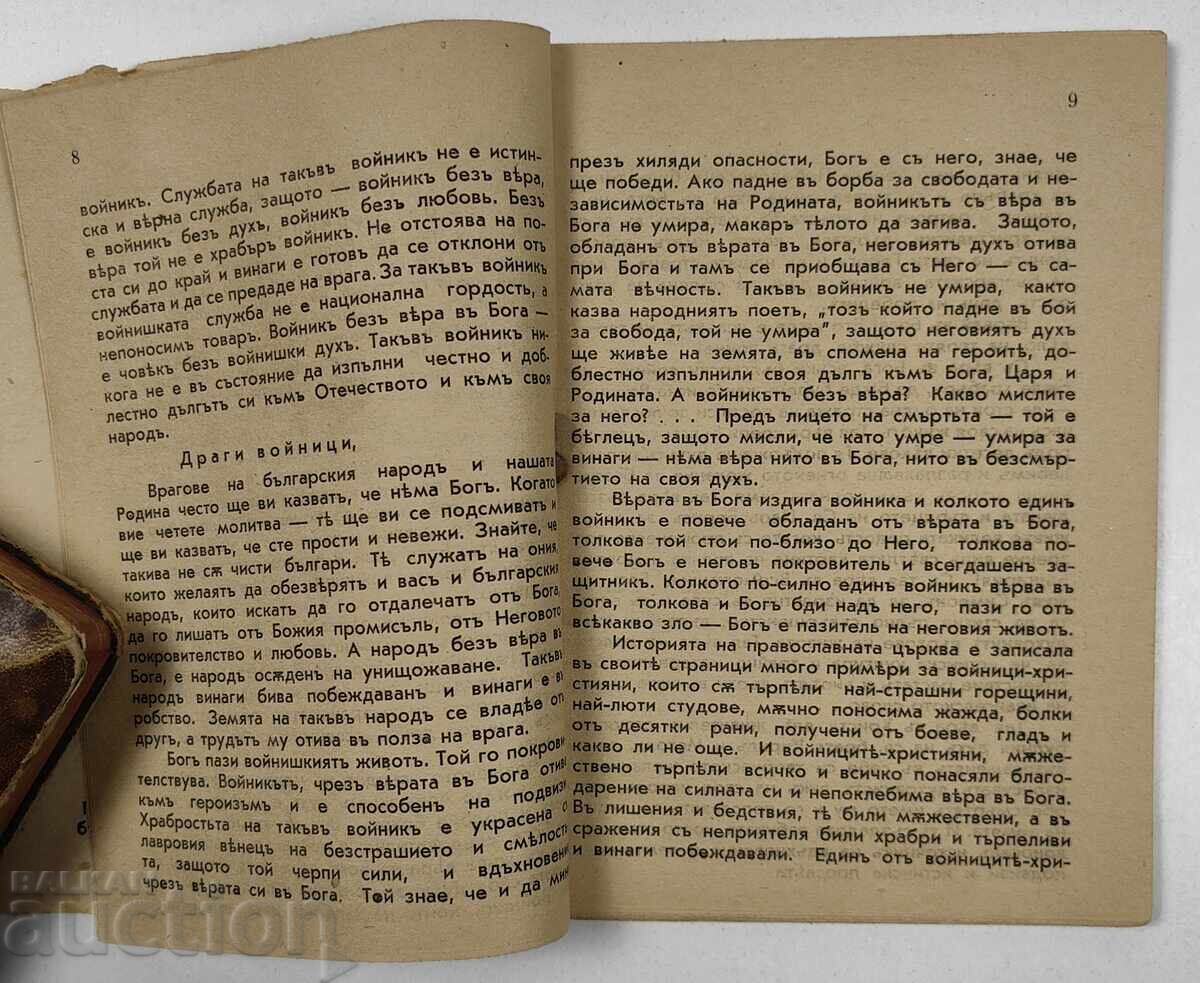 8
войникъ. Службата на такъвъ войникъ не е истин-
ска и вѣрна служба, защото — войникъ безъ вѣра,
е войникъ безъ духъ, войникъ безъ любовь. Безъ
вѣра той не е храбъръ войникъ. Не отстоява на по-
ста си до край и винаги е готовъ да се отклони отъ
службата и да се предаде на врага. За такъвъ войникъ
войнишката служба не е национална гордость, а
непоносимъ товаръ. Войникъ безъ вѣра въ Бога —
е човѣкъ безъ войнишки духъ. Такъвъ войникъ ни-
кога не е въ състояние да изпълни честно и доб-
лестно дългътъ си къмъ Отечеството и къмъ своя
народъ.
Драги войници,
Врагове на българския народъ и нашата
Родина често ще ви казватъ, че нѣма Богъ. Когато
вие четете молитва — тѣ ще ви се подсмиватъ и
ще ви казватъ, че сте прости и невежи. Знайте, че
такива не сѫ чисти българи. Тѣ служатъ на ония,
които желаятъ да обезвѣрятъ и васъ и българския
народъ, които искатъ да го отдалечатъ отъ Бога,
да го лишатъ отъ Божия промисълъ, отъ Неговото
покровителство и любовь. А народъ безъ вѣра въ
Бога, е народъ осѫденъ на унищожаване. Такъвъ
народъ винаги бива побеждаванъ и винаги е въ
робство. Земята на такъвъ народъ се владѣе отъ
другъ, а трудътъ му отива въ полза на врага.
Богъ пази войнишкиятъ животъ. Той го покрови
телствува. Войникътъ, чрезъ вѣрата въ Бога отива
къмъ героизъмъ и е способенъ на подвизи
Храбростьта на такъвъ войникъ е украсена с
лавровия вѣнецъ на безстрашието и смѣлость
та, защото той черпи сили, и вдъхновени
чрезъ вѣрата си въ Бога. Той знае, че и да мин
9
презъ хиляди опасности, Богъ е съ него, знае, че
ще победи. Ако падне въ борба за свободата и не-
зависимостьта на Родината, войникътъ съ вѣра въ
Бога не умира, макаръ тѣлото да загива. Защото,
обладанъ отъ вѣрата въ Бога, неговиятъ духъ отива
при Бога и тамъ се приобщава съ Него — съ са-
мата вѣчность. Такъвъ войникъ не умира, както
казва народниятъ поетъ, „тозъ който падне въ бой
за свобода, той не умира”, защото неговиятъ духъ
ще живѣе на земята, въ спомена на героитѣ, до-
блестно изпълнили своя дългъ къмъ Бога, Царя и
Родината. А войникътъ безъ вѣра? Какво мислите
за него? . . . Предъ лицето на смъртьта — той е
бѣглецъ, защото мисли, че като умре — умира за
винаги — нѣма вѣра нито въ Бога, нито въ безсмър-
тието на своя духъ.
Вѣрата въ Бога издига войника и колкото единъ
войникъ е повече обладанъ отъ вѣрата въ Бога,
толкова той стои по-близо до Него, толкова по-
вече Богъ е неговъ покровитель и всегдашенъ за-
щитникъ. Колкото по-силно единъ войникъ вѣрва въ
Бога, толкова и Богъ бди надъ него, пази го отъ
всѣкакво зло — Богъ е пазитель на неговия животъ.
Историята на православната църква е записала
въ своитѣ страници много примѣри за войници-хри-
стияни, които сѫ търпѣли най-страшни горещини,
най-люти студове, мѫчно поносима жажда, болки
отъ десятки рани, получени отъ боеве, гладъ и
какво ли не още. И войницитѣ-християни, мѫже-
ствено търпѣли всичко и всичко понасяли благо-
дарение на силната си и непоклебима вѣра въ Бога.
Въ лишения и бедствия, тѣ били мѫжествени, а въ
сражения съ неприятеля били храбри и търпеливи
и винаги побеждавали. Единъ отъ войницитѣ-хри-
BALKAN
auction